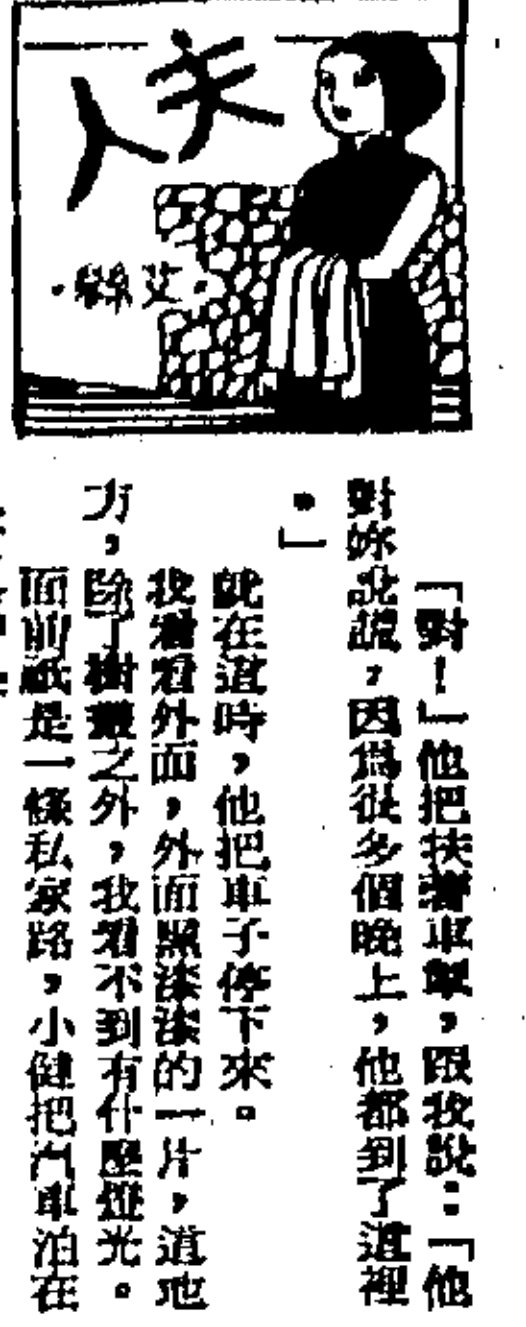 夫人
·艾·
「對！」他把扶著車掣，跟我說：「他
對妳說謊，因爲很多個晚上，他都到了這裡
。」
就在這時，他把車子停下來。
我看看外面，外面黑漆漆的一片，這地
方，除了樹叢之外，我看不到有什麼燈光。
面前祇是一條私家路，小健把汽車泊在